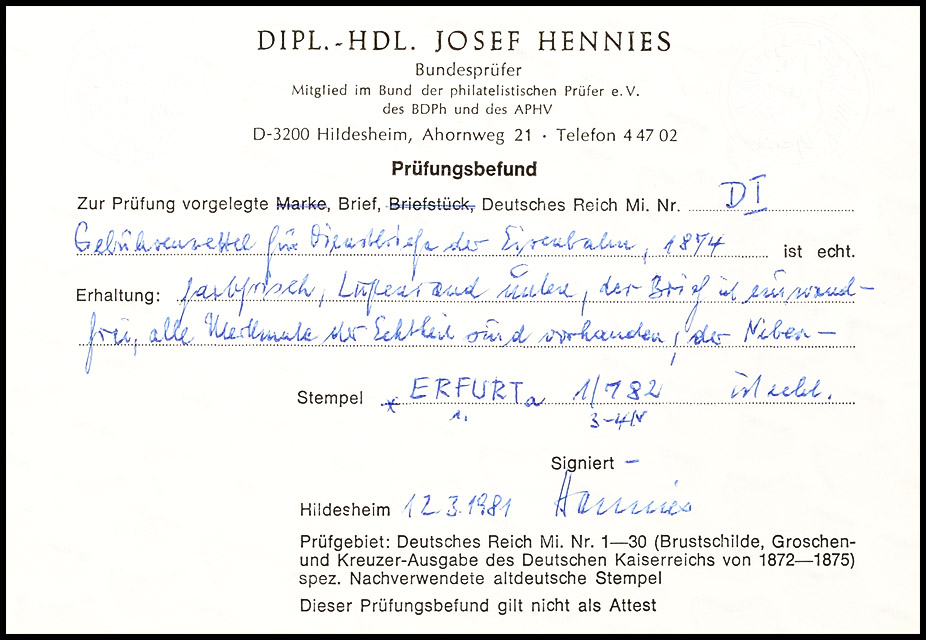 DIPL.-HDL. JOSEF HENNIES
Bundesprüfer
Mitglied im Bund der philatelistischen Prüfer e. V.
des BDPh und des APHV
D-3200 Hildesheim, Ahornweg 21 · Telefon 4 47 02
Prüfungsbefund
Zur Prüfung vorgelegte Marke, Brief, Briefstück, Deutsches Reich Mi. Nr. D I
Gebührenzettel für Dienstbriefe der Eisenbahn, 1874 ist echt.
Erhaltung: farbfrisch, Lupenrand unten, der Brief ist einwand-
frei, alle Merkmale der Echtheit sind vorhanden, der Neben-
Stempel * ERFURT a 1/7 82 ist echt.
1. 3-4N
Signiert –
Hildesheim 12.3.1981 Hennies
Prüfgebiet: Deutsches Reich Mi. Nr. 1—30 (Brustschilde, Groschen-
und Kreuzer-Ausgabe des Deutschen Kaiserreichs von 1872—1875)
spez. Nachverwendete altdeutsche Stempel
Dieser Prüfungsbefund gilt nicht als Attest